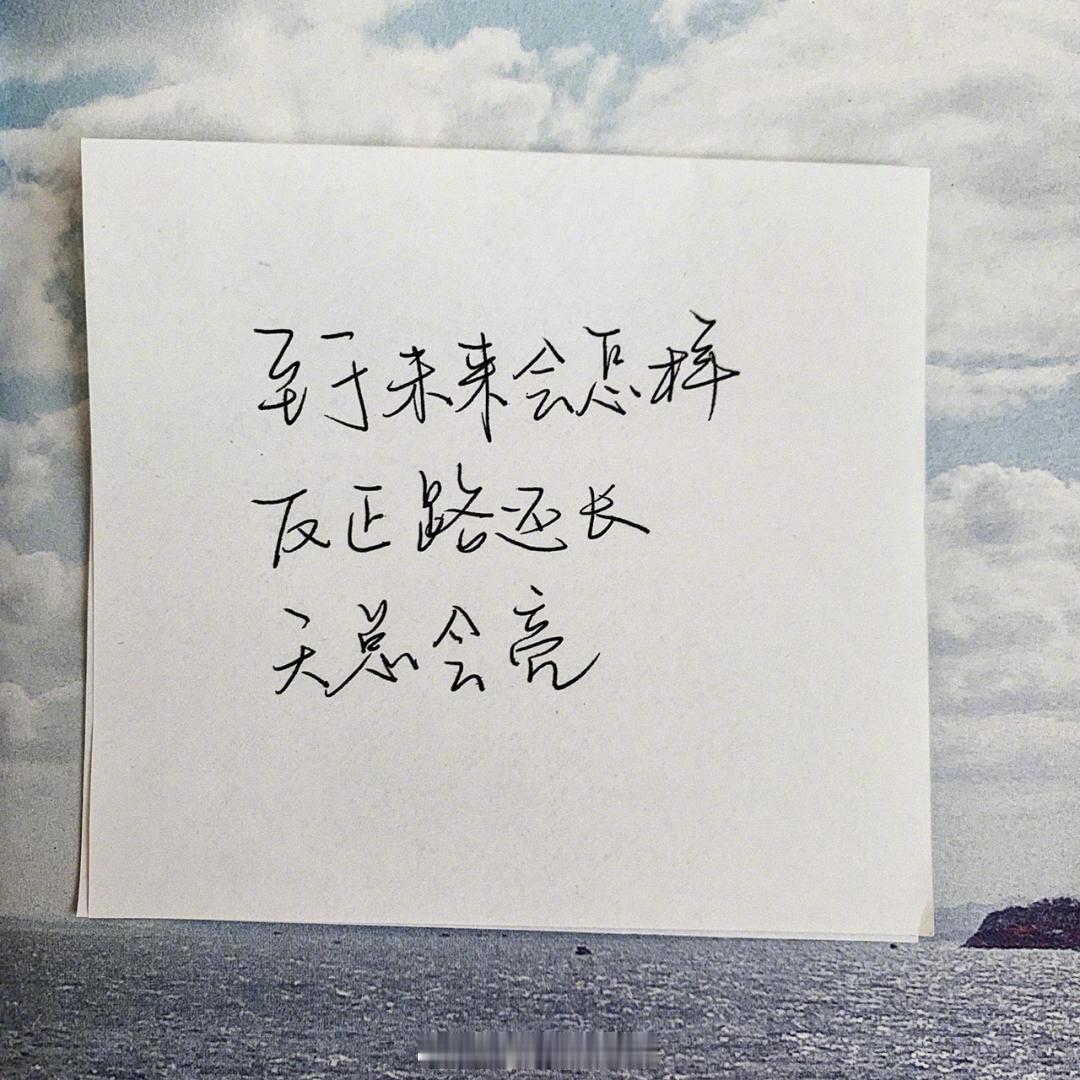 至于未来会怎样
反正路还长
天总会亮